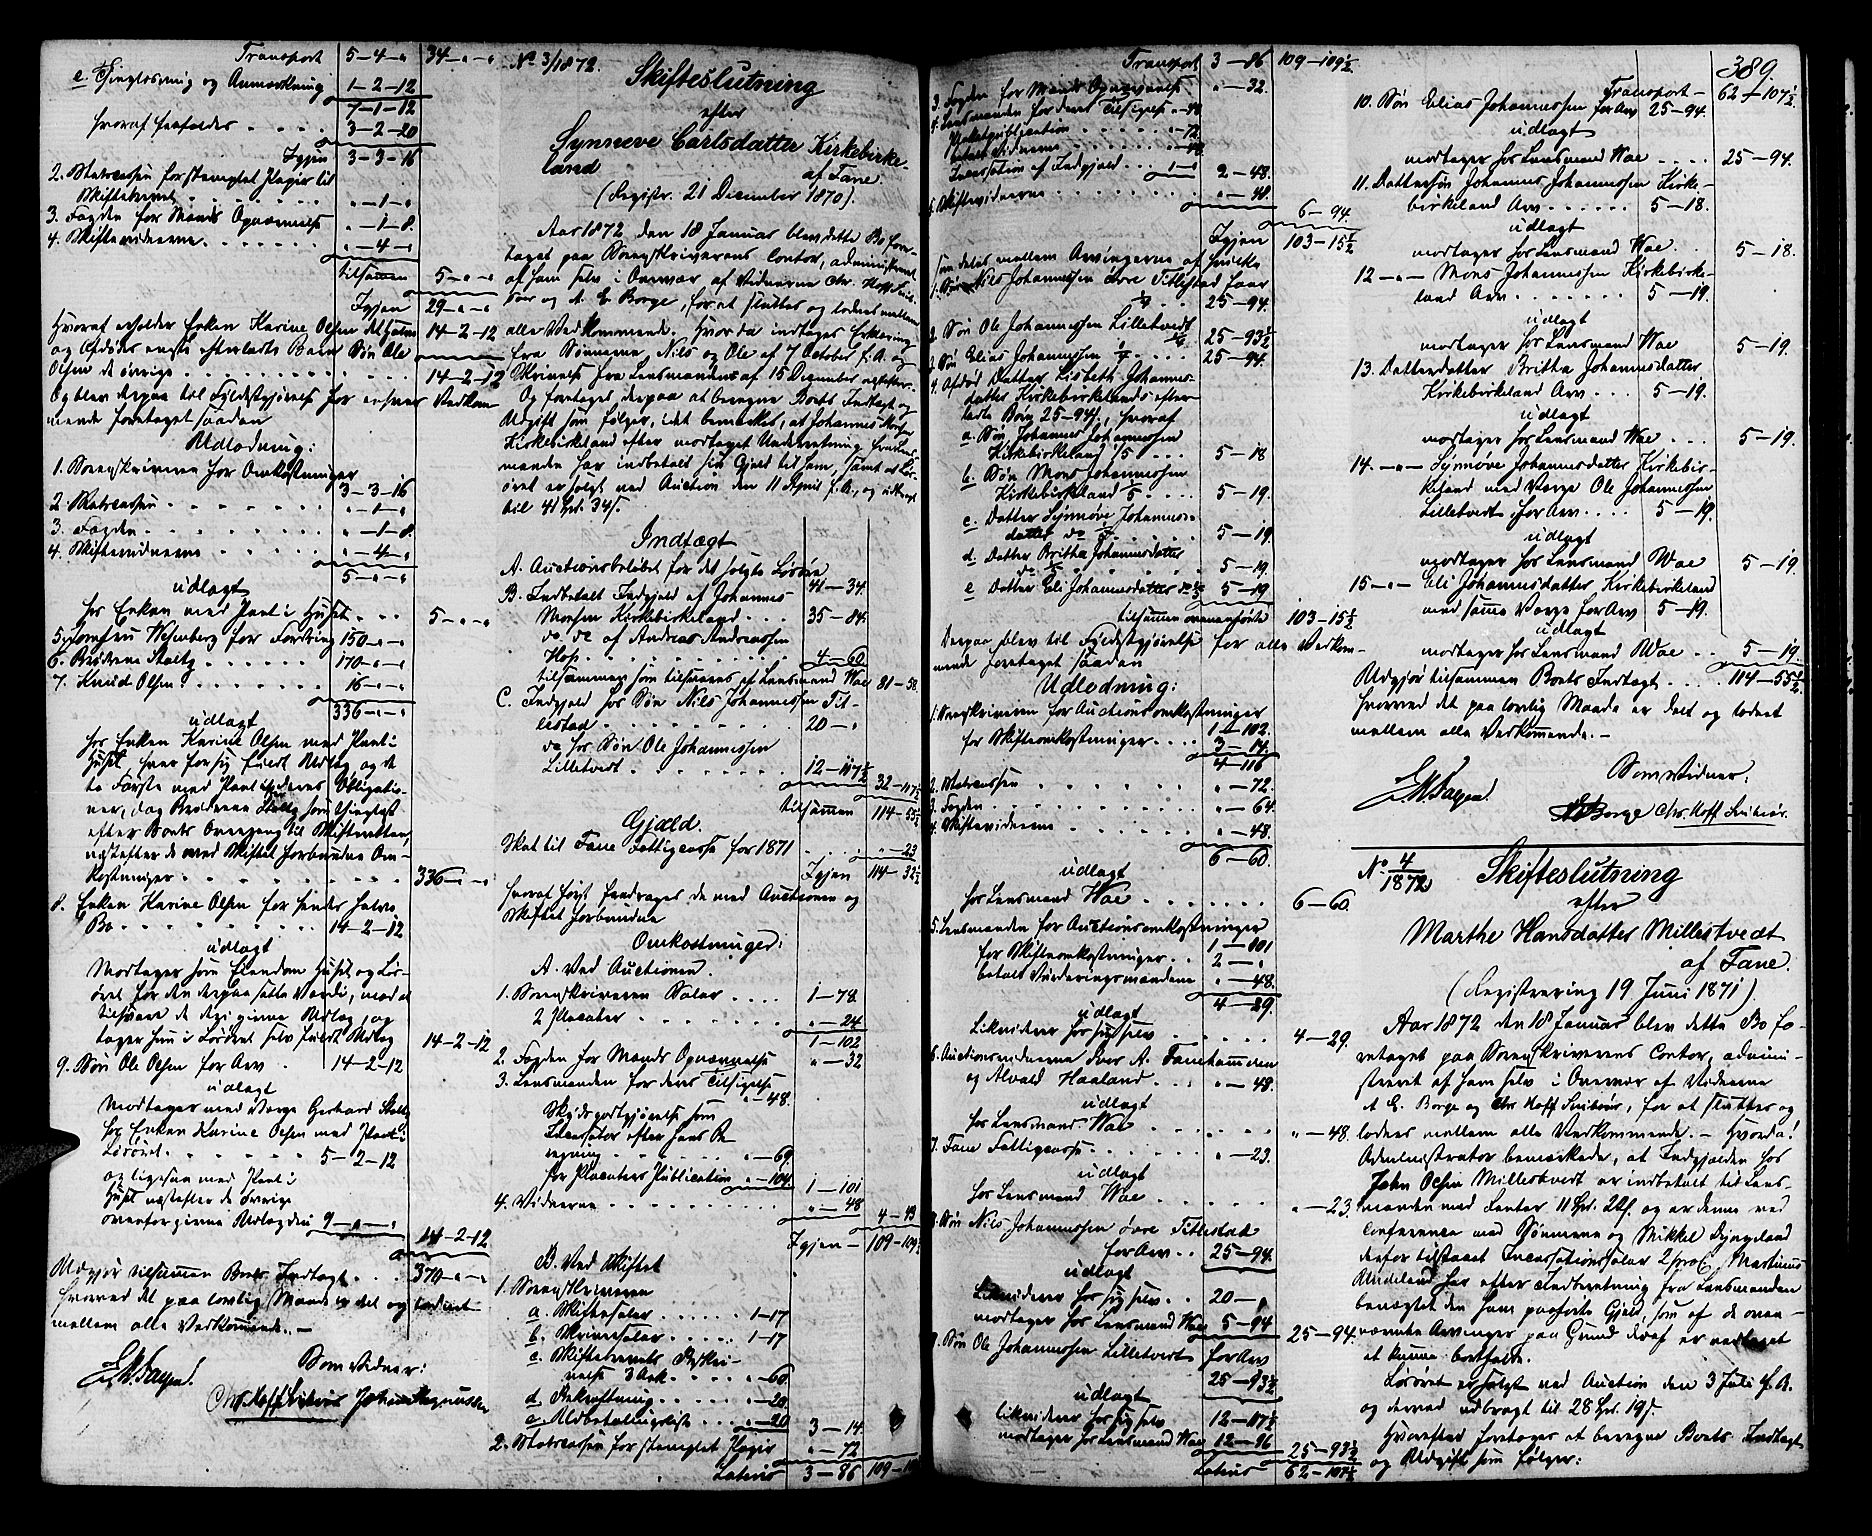 Transport 5-4-" 34-"-"
e. Thinglæsning og Anmærkning 1-2-12
7-1-12
hvoraf frafalder 3-2-20
Igjen 3-3-16
2. Statscassen for stemplet Papir til
Skiftebrevet "-1-"
3. Fogden for Mands Opnævnelse "-1-8.
4. Skiftevidnerne "-4-"
tilsammen 5-"-"
Igjen 29-"-"
Hvoraf erholder Enken Karine Olsen det halve 14-2-12
og Afdødes eneste efterladte Barn Søn Ole
Olsen de øvrige 14-2-12
Og blev derpaa til Fyldestgjørelse for enhver Vedkom-
mende foretaget saadan
Udlodning:
1. Sorenskriveren for Omkostninger
3-3-16
2. Statscassen "-1-"
3. Fogden "-1-8.
4. Skiftevidnerne "-4-"
5-"-"
udlagt
hos Enken med Pant i Huset 5-"-"
5. Jomfru Wesenberg for Fordring 150-"-"
6. Brødrene Stoltz 170-"-"
7. Knud Olsen 16-"-"
336-"-"
udlagt
hos Enken Karine Olsen med Pant i
Huset, hver for sig
te Første med Pant deres Obligatio-
ner, dog Brødrene Stoltz som
efter Boets Overgang til Skifteretten,
næstefter de med Skiftet forbundne Om-
kostninger 336-"-"
8. Enken Karine Olsen for hendes halve
Bo 14-2-12
udlagt
Modtager som Eiendom Huset og Løs-
øret for den derpaa satte Værdi, mod at
tilsvare de deri givne Udlæg og
tager hun i Løsøret selv sit Udlæg 14-2-12
9. Søn Ole Olsen for Arv 14-2-12
udlagt
Modtager med Værge Gerhard Stoltz
hos Enken Karine Olsen med Pant i
Løsøret 5-2-12
og ligesaa med Pant i
Huset næstefter de øvrige
ovenfor givne Udlæg den 9-"-"
14-2-12
Udgjør tilsammen Boets Indtægt 370-"-"
hvorved det paa lovlig Maade er delt og loddet
mellem alle Vedkommende.-
Som Vidner:
Johan Magnussen
No 3/1872.
Skifteslutning
efter
Synneve Carlsdatter Kirkebirke-
land
af Fane.
(Registr. 21 December 1870).
Aar 1872 den 18 Januar blev dette Bo fore-
taget paa Sorenskriverens Contor, administreret
af ham selv i Overvær af Vidnerne Chr. Hoff
og A. E. Borge, for at sluttes og loddes mellem
alle Vedkommende. Hvorda indtoges Erklæring
fra Sønnerne Nils og Ole af 7 October f. A. og
Skrivelse fra Lensmanden af 15 December næstefter.
Og foretoges derpaa at beregne Boets Indtægt og
Udgift som følger, idet bemærkes, at Johannes Monsen
Kirkebirkeland efter modtaget Underretning fra Lens-
manden har indbetalt sin Gjæld til ham, samt at Løs-
øret er solgt ved Auction den 11 April f. A., og udbragt
til 41 Spd. 34 s.
Indtægt
A. Auctionsbeløbet for det solgte Løsøre
41-34.
B. Indbetalt Indgjæld af Johannes
Monsen Kirkebirkeland 35-84.
do do af Andreas Andreassen
Hop 4-60.
tilsammen som tilsvares af Lensmand Wae 81-58.
C. Indgjæld hos Søn Nils Johannessen Tit-
lestad 20-"
do hos Søn Ole Johannessen
Lilletvedt 12-117½
32-117½
tilsammen 114-55½
Gjæld.
Skat til Fane Fattigcasse for 1871 "-23
Igjen 114-32½
hvoraf først fradrages de med Auctionen og
Skiftet forbundne
Omkostninger:
A. Ved Auctionen.
1. Sorenskriveren Salær 1-78.
2 Placater "-24
1-102
2. Fogden for Mands Opnævnelse "-32
3. Lensmanden for dens Tilsigelse "-48.
Skydsgodtgjørelse som
Incassator efter hans Be
regning "-69
for Placaters Publication "-104.
1-101
4. Vidnerne "-48
4-43
Igjen - 109-109½
B. Ved Skiftet
1. Sorenskriveren
a. Skiftesalær 1-17
b. Skrivesalær 1-17
c. Skiftebrevets Beskri-
velse 3 Ark "-60
d. Bekræftning "-20
e. Udbetalingsliste "-20
3-14
2. Statscassen for stemplet Papir "-72
Latus 3-86 109-109½
Transport 3-86 109-109½
3. Fogden for Mands Opnævnelse "-32.
4. Lensmanden for dens Tilsigelse "-48
Placatpublication "-72
betalt Vidnerne "-48
Incassation af Indgjæld 1-"
2-48.
5. Skiftevidnerne "-48.
6-94.
Igjen 103-15½
som deles mellem Arvingerne af hvilke
1. Søn Nils Johannessen Øvre Titlestad faar
¼ 25-94.
2. Søn Ole Johannessen Lilletvedt ¼ 25-93½
3. Søn Elias Johannessen ¼ 25-94.
4. Afdød Datter Lisbeth Johannes-
datter Kirkebirkelands efter-
ladte Børn 25-94., hvoraf
a. Søn Johannes Johannessen
Kirkebirkeland 1/5 5-18
b. Søn Mons Johannessen
Kirkebirkeland 1/5 5-19.
c. Datter Synnøve Johannes-
datter do 1/5 5-19.
d. Datter Britha Johannesdatter
do 1/5 5-19.
e Datter Eli Johannesdatter do 1/5 5-19
tilsammen ovenanførte 103-15½
Derpaa blev til Fyldestgjørelse for alle Vedkom-
mende foretaget saadan
Udlodning:
1. Sorenskriveren for Auctionsomkostninger
1-102.
for Skifteomkostninger 3-14.
4-116
2. Statscassen "-72.
3. Fogden "-64.
4. Skiftevidnerne "-48.
6-60.
udlagt
hos Lensmand Wae 6-60.
5. Lensmanden for Auctionsomkostninger
1-101
for Skifteomkostninger 2-"
betalt Vurderingsmændene "-48.
4-29.
udlagt
Likviderer hos sig selv 4-29.
6. Auctionsvidnerne Iver A. Fanehammeren
og Alvald Haaland "-48.
udlagt
hos Lensmand Wae "-48.
7. Fane Fattigcasse "-23.
udlagt
hos Lensmand Wae "-23.
8. Søn Nils Johannessen øvre Titlestad
for Arv 25-94.
udlagt
Likviderer hos sig selv 20-"
modtager hos Lensmand Wae 5-94
25-94.
9. Søn Ole Johannessen Lilletvedt for Arv
25-93½
udlagt
likviderer hos sig selv 12-117½
modtager hos Lensmand Wae 12-96
25-93½
Latus 62-107½
389.
Transport 62-107½
10. Søn Elias Johannessen for Arv 25-94.
udlagt
modtager hos Lensmand Wae 25-94.
11. Dattersøn Johannes Johannessen Kirke-
birkeland Arv 5-18.
udlagt
modtager hos Lensmand Wae 5-18.
12 -"- Mons Johannessen Kirkebirke-
land Arv 5-19.
udlagt
modtager hos Lensmand Wae 5-19.
13. Datterdatter Britha Johannesdatter
Kirkebirkeland Arv 5-19.
udlagt
modtager hos Lensmand Wae 5-19.
14. -"- Synnøve Johannesdatter Kirkebir-
keland med Værge Ole Johannessen
Lilletvedt for Arv 5-19.
udlagt
modtager hos Lensmand Wae 5-19.
15 -"- Eli Johannesdatter Kirkebirkeland
med samme Værge for Arv 5-19.
udlagt
modtager hos Lensmand Wae 5-19.
Udgjør tilsammen Boets Indtægt 114-55½
hvorved det paa lovlig Maade er delt og loddet
mellem alle Vedkommende.-
Som Vidner:
AEBorge Chr. Hoff
No. 4/1872
Skifteslutning
efter
Marthe Hansdatter Millestvedt
af Fane.
(Registrering 19 Juni 1871).
Aar 1872 den 18 Januar blev dette Bo fo-
retaget paa Sorenskriverens Contor, admini-
streret af ham selv i Overvær af Vidnerne
A. E. Borge og Chr. Hoff, for at sluttes og
loddes mellem alle Vedkommende.- Hvorda!
Administrator bemærkede, at Indgjælden hos
John Olsen Millestvedt er indbetalt til Lens-
manden med Renter 11 Spd. 22 s. og er denne ved
Conference med Sønnerne og Mikkel Dyngeland
derfor tilstaaet Incassationssalær 2 pro C, Martinus
har efter Indberetning fra Lensmanden
benægtet den ham paaførte Gjæld, som af de oven-
nævnte Arvinger paa Grund deraf er vedtaget
at kunne bortfalde.
Løsøret er solgt ved Auction den 3 Juli f. A.
og derved udbragt til 28 Spd. 19 s.
Hvorefter foretoges at beregne Boets Indtægt
og Udgift som følger: